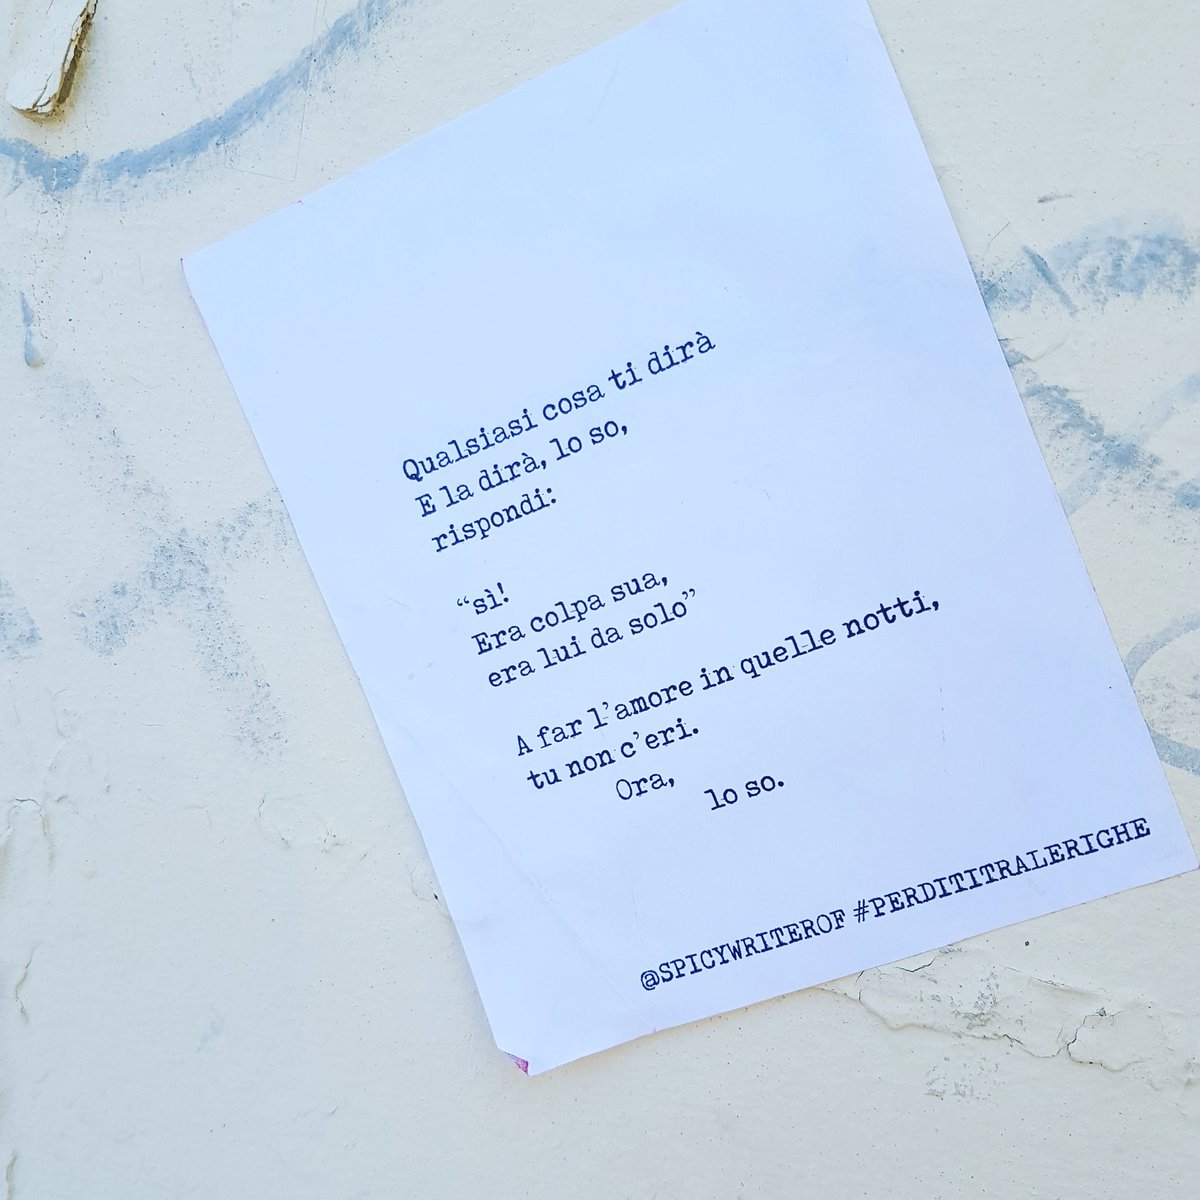 Qualsiasi cosa ti dirà
E la dirà, lo so,
rispondi:
“sì!
Era colpa sua,
era lui da solo”
A far l’amore in quelle notti,
tu non c’eri.
Ora,
lo so.
@SPICYWRITEROF #PERDITITRALERIGHE